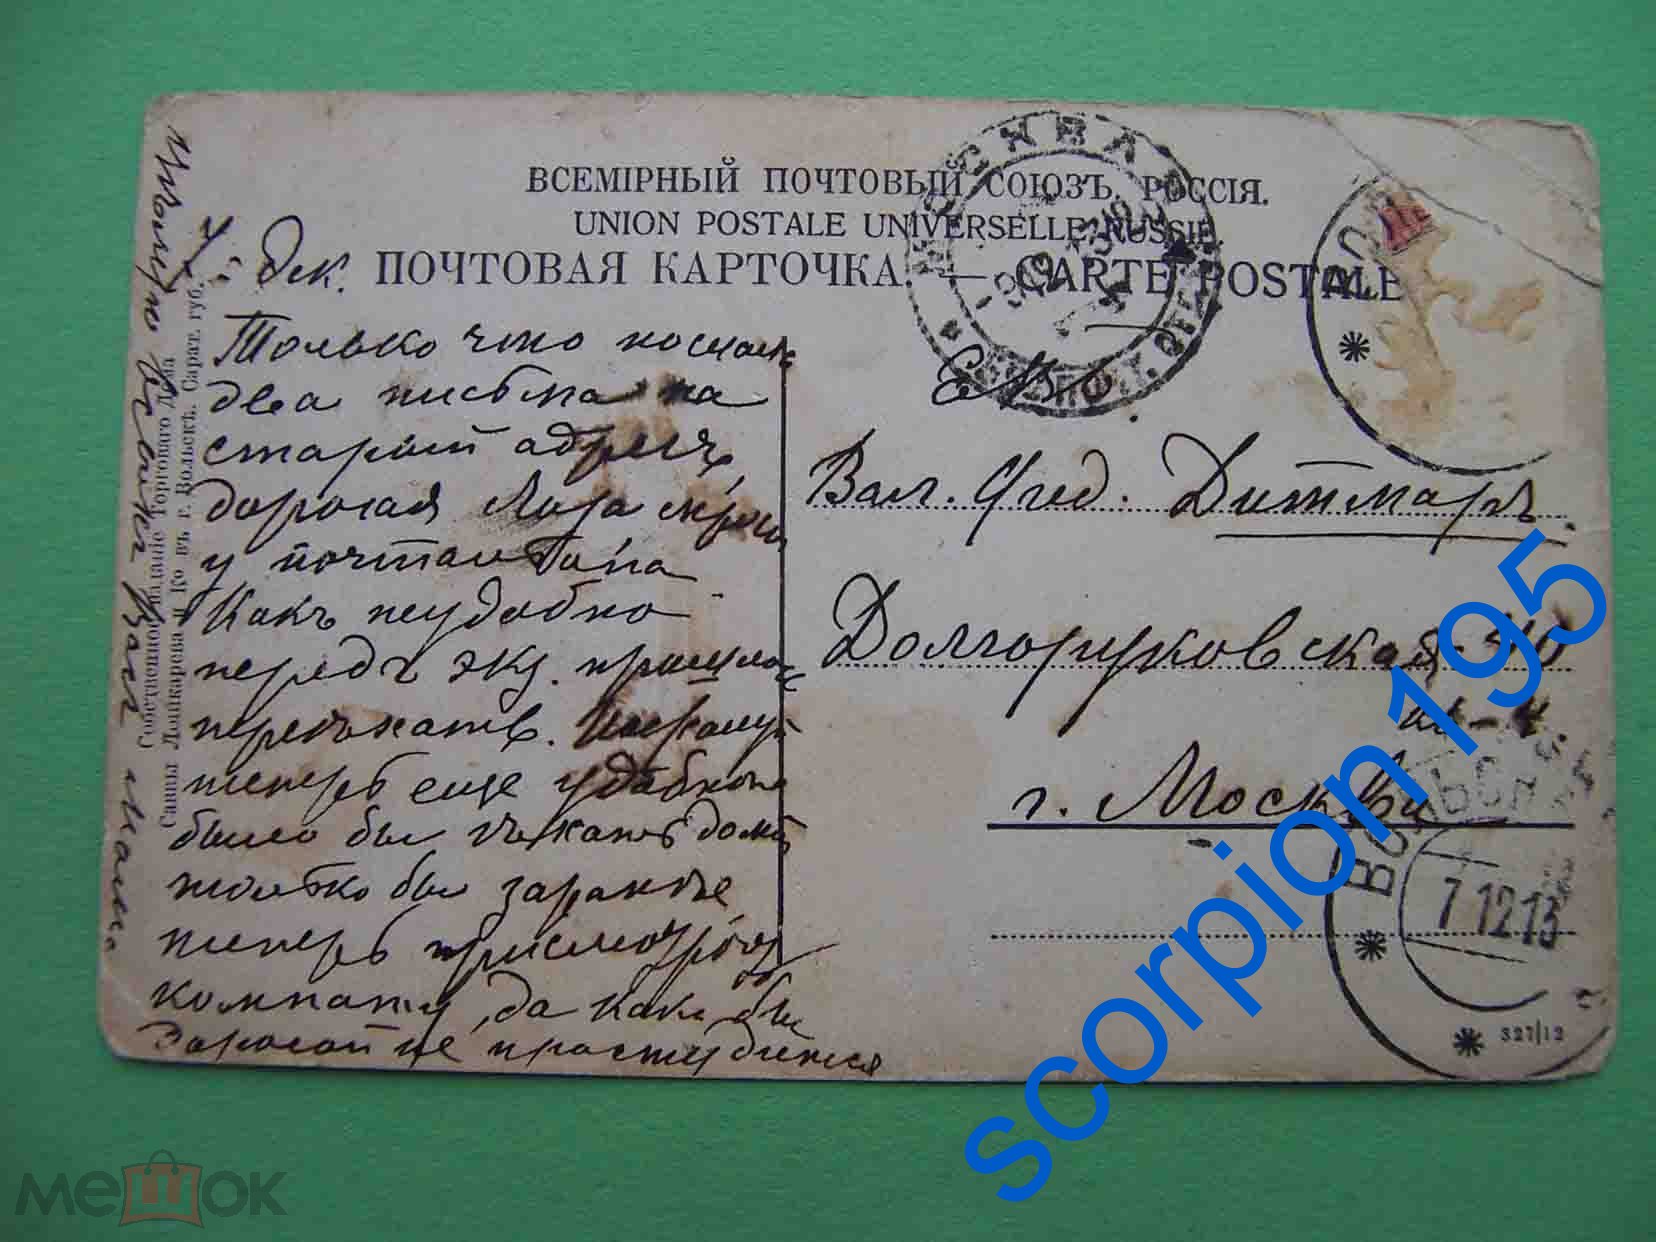 ВСЕМІРНЫЙ ПОЧТОВЫЙ СОЮЗЪ. РОССІЯ.
UNION POSTALE UNIVERSELLE RUSSIE.
ПОЧТОВАЯ КАРТОЧКА. — CARTE POSTALE
7. Дек.
Только что послала
два письма на
старый адресъ,
дорогая
у почтальона
Какъ неудобно
передъ экз. пришлось
переѣхать.
теперь еще удобно
было бы ѣхать домой
только бы заранѣе
теперь присмотрѣть
комнату, да какъ бы
дорогой не простудиться
Цѣлую
Собственное изданіе Торговаго Дома
Санны Лейкарева и Ко въ г. Вольскѣ. Сарат. губ.
ЕВб
Вал. Фед. Дитмаръ.
Долгоруковская 40
кв - 4.
г. Москва
МОСКВА
ВОЛЬСК
ВОЛЬСКЪ
7 12 13
327/12
scorpion195
мешок